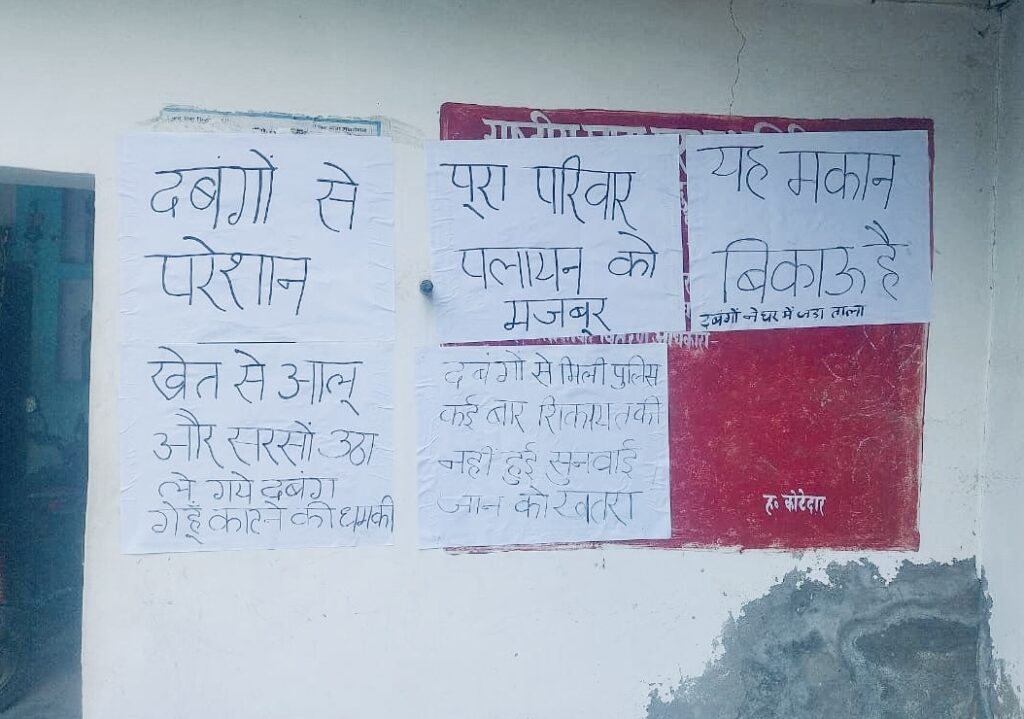 दबंगों से
परेशान
पूरा परिवार
पलायन को
मजबूर
यह मकान
बिकाऊ है
दबंगों ने घर में जडा ताला
खेत से आलू
और सरसों उठा
ले गये दबंग
गेहूँ काटने की धमकी
दबंगों से मिली पुलिस
कई बार शिकायत की
नही हुई सुनवाई
जान को खतरा
ह० कोटेदार